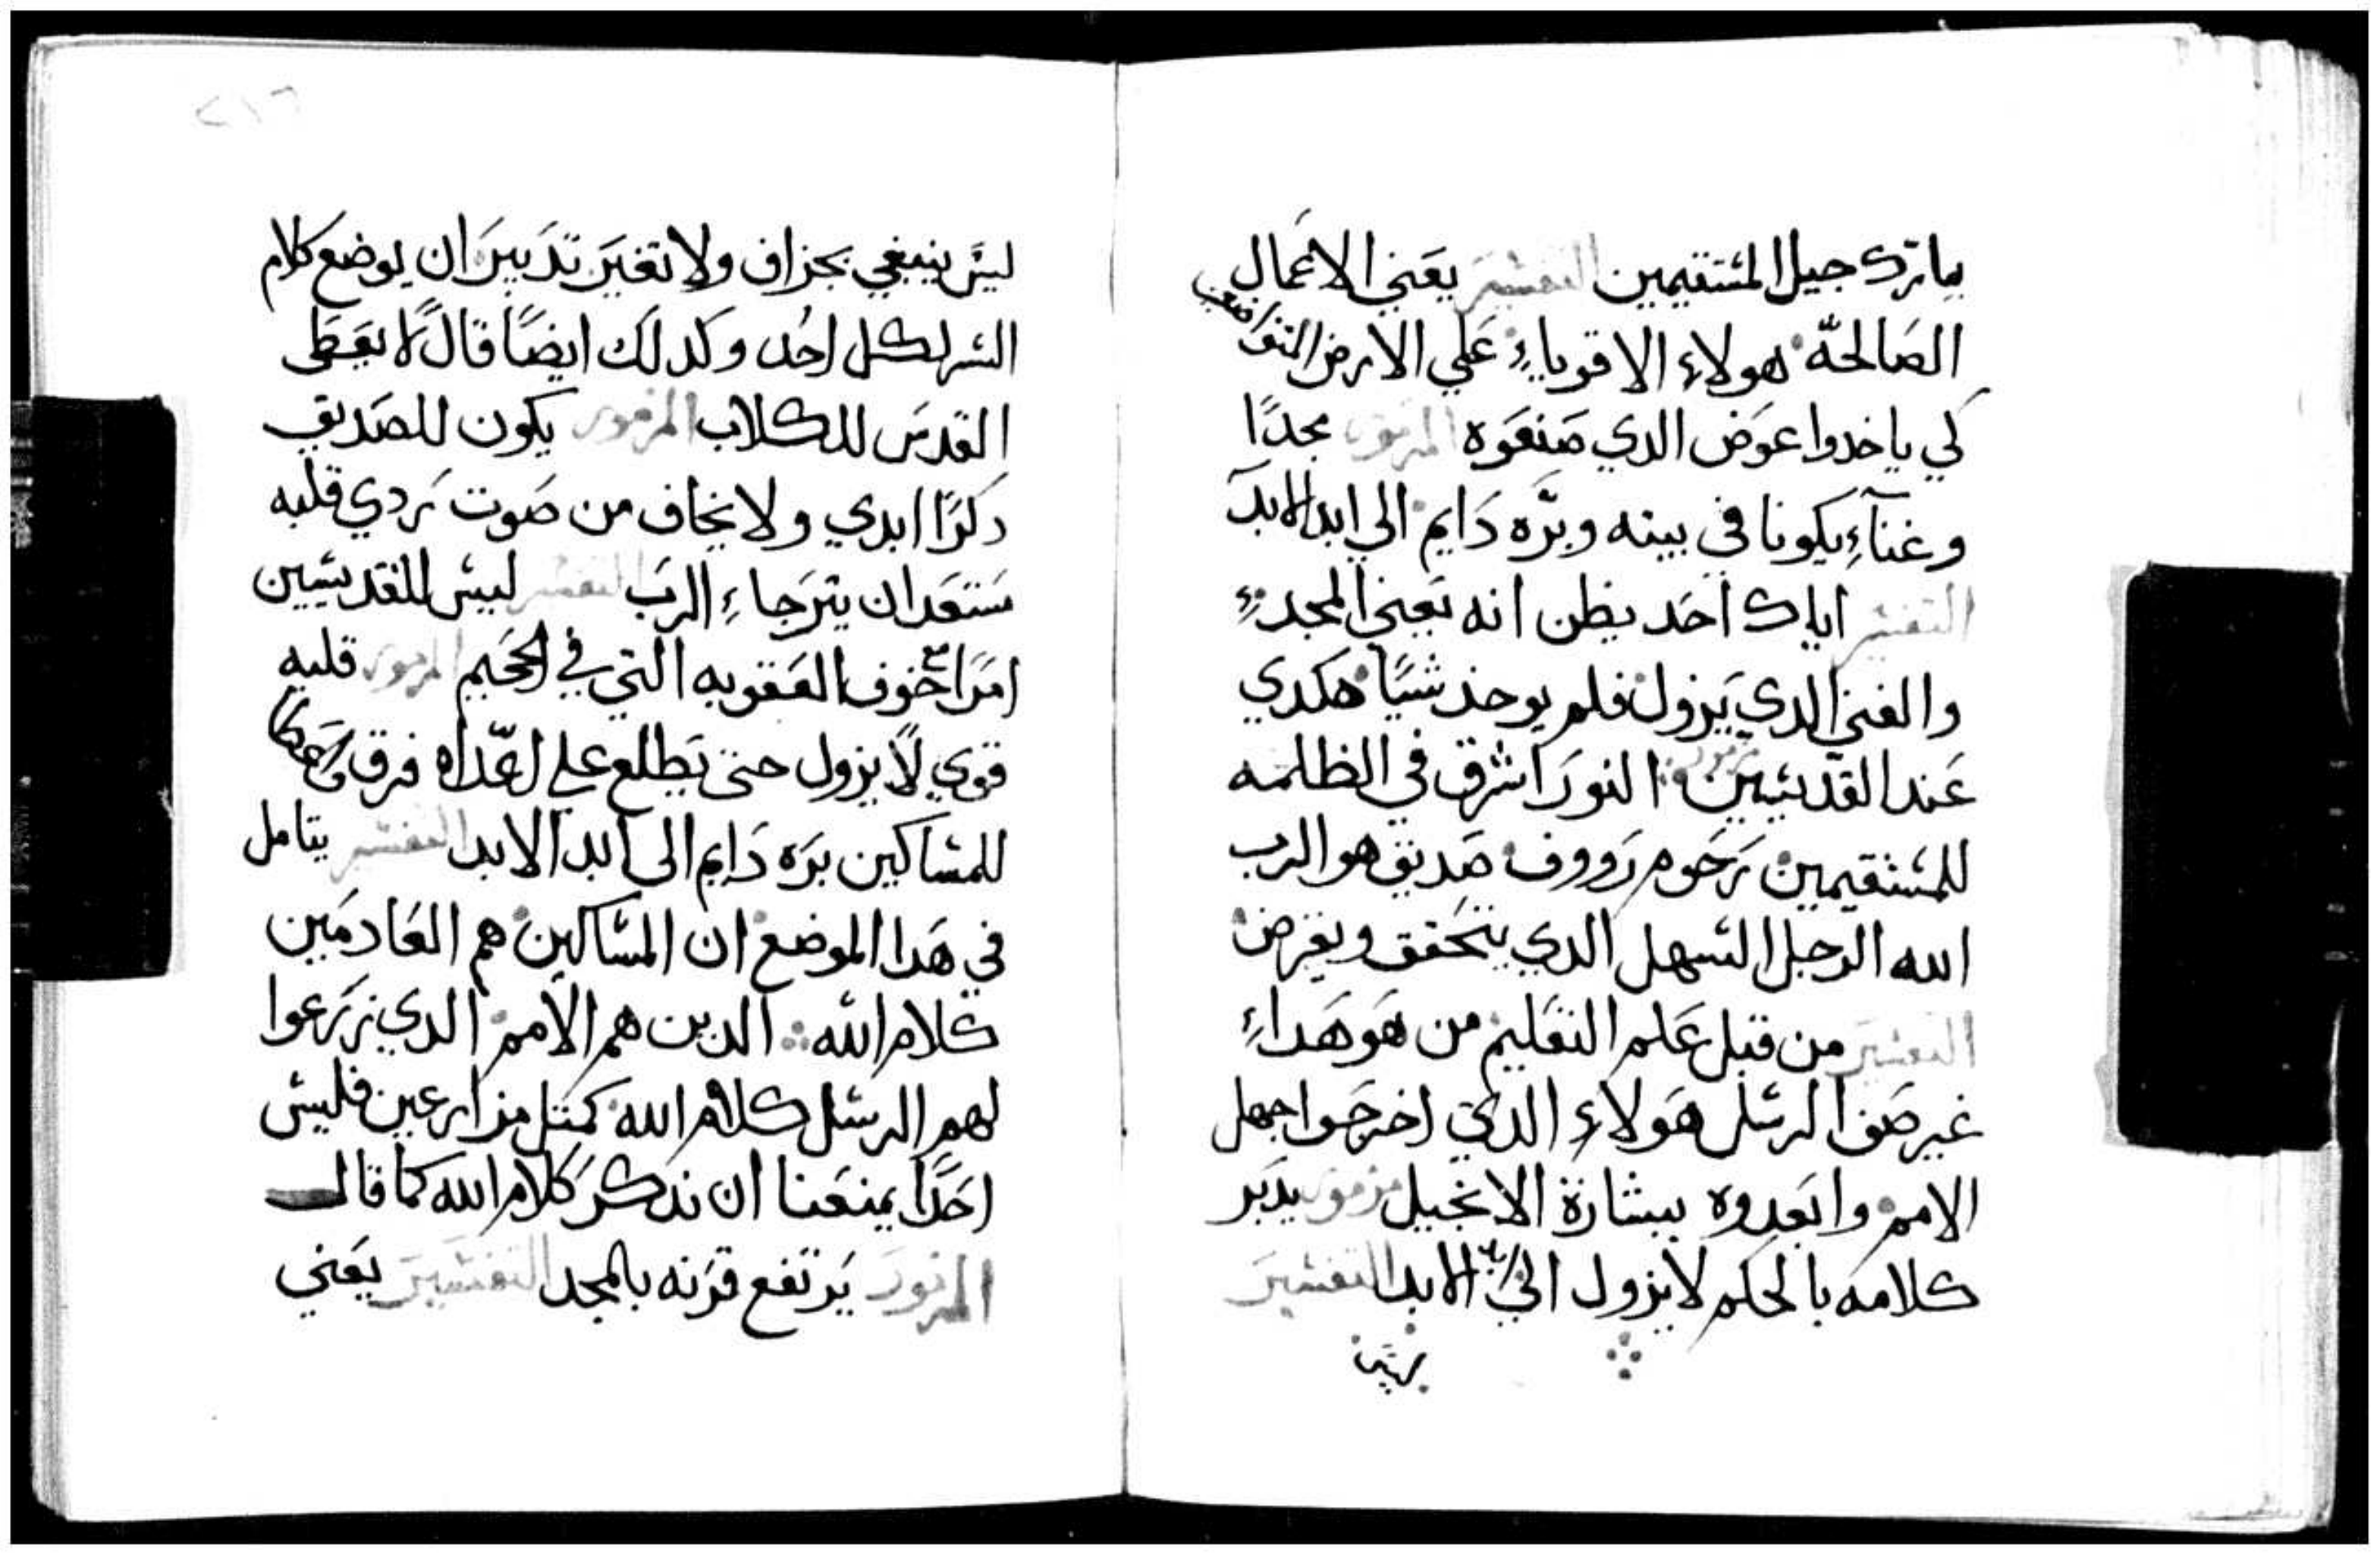 يبارك جيل المستقيمين التفسير يعني الاعمال
الصالحة هولاء الاقوياء علي الارض المتواضعين
لكي ياخدوا عوض الدي صنعوه المزمور مجدًا
وغناء يكونا في بيته وبرّه دايم الي ابد الابد
التفسير اياك احد يظن انه يعني المجد
والغني الدي يزول فلم يوحذ شيًا هكدي
عند القديسين مزمور النور اشرق في الظلمه
للمستقيمين رحوم رووف صديق هو الرب
الله الرجل السهل الدي يتحقق ويقرض
التفسير من قبل علم التعليم من هو هداء
غير صف الرسل هولاء الدي اخرجوا جهل
الامم وابعدوه ببشارة الانجيل مزمور يدبر
كلامه بالحكم لا يزول الي ابد الابد التفسير
٢١٦
ليس ينبغي بجزاف ولا تغير تدبير ان يوضع كلام
السر لكل احد وكدلك ايضًا قال لا يعطى
القدس للكلاب المزمور يكون للصديق
دكرًا ابدي ولا يخاف من صوت ردي قلبه
مستعد ان يترجاء الرب التفسير ليس للقديسين
امرًا خوف العقوبه التي في الجحيم المزمور قلبه
قوي لا يزول حتى يطلع علي اعداه فرق واعطا
للمساكين بره دايم الى ابد الابد التفسير يتامل
في هدا الموضع ان المساكين هم العادمين
كلام الله الدين هم الامم الدي زرعوا
لهم الرسل كلام الله كمتل مزارعين فليس
احدًا يمنعنا ان ندكر كلام الله كما قال
المزمور يرتفع قرنه بالمجد التفسير يعني